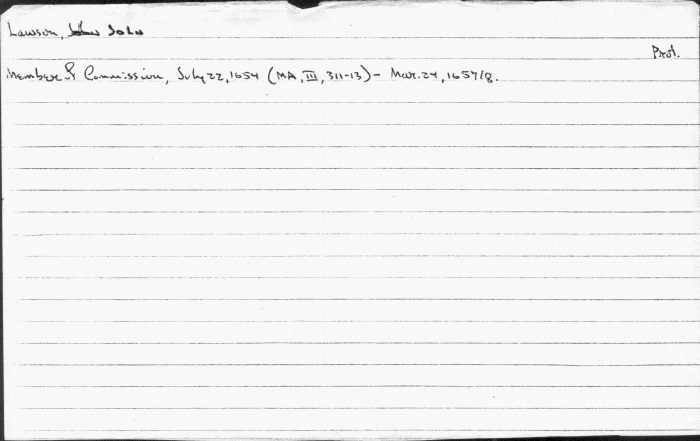 Lawson, John
Prot.
Member of Commission, July 22, 1654 (MA, III, 311-13) - Mar. 24, 1657/8.